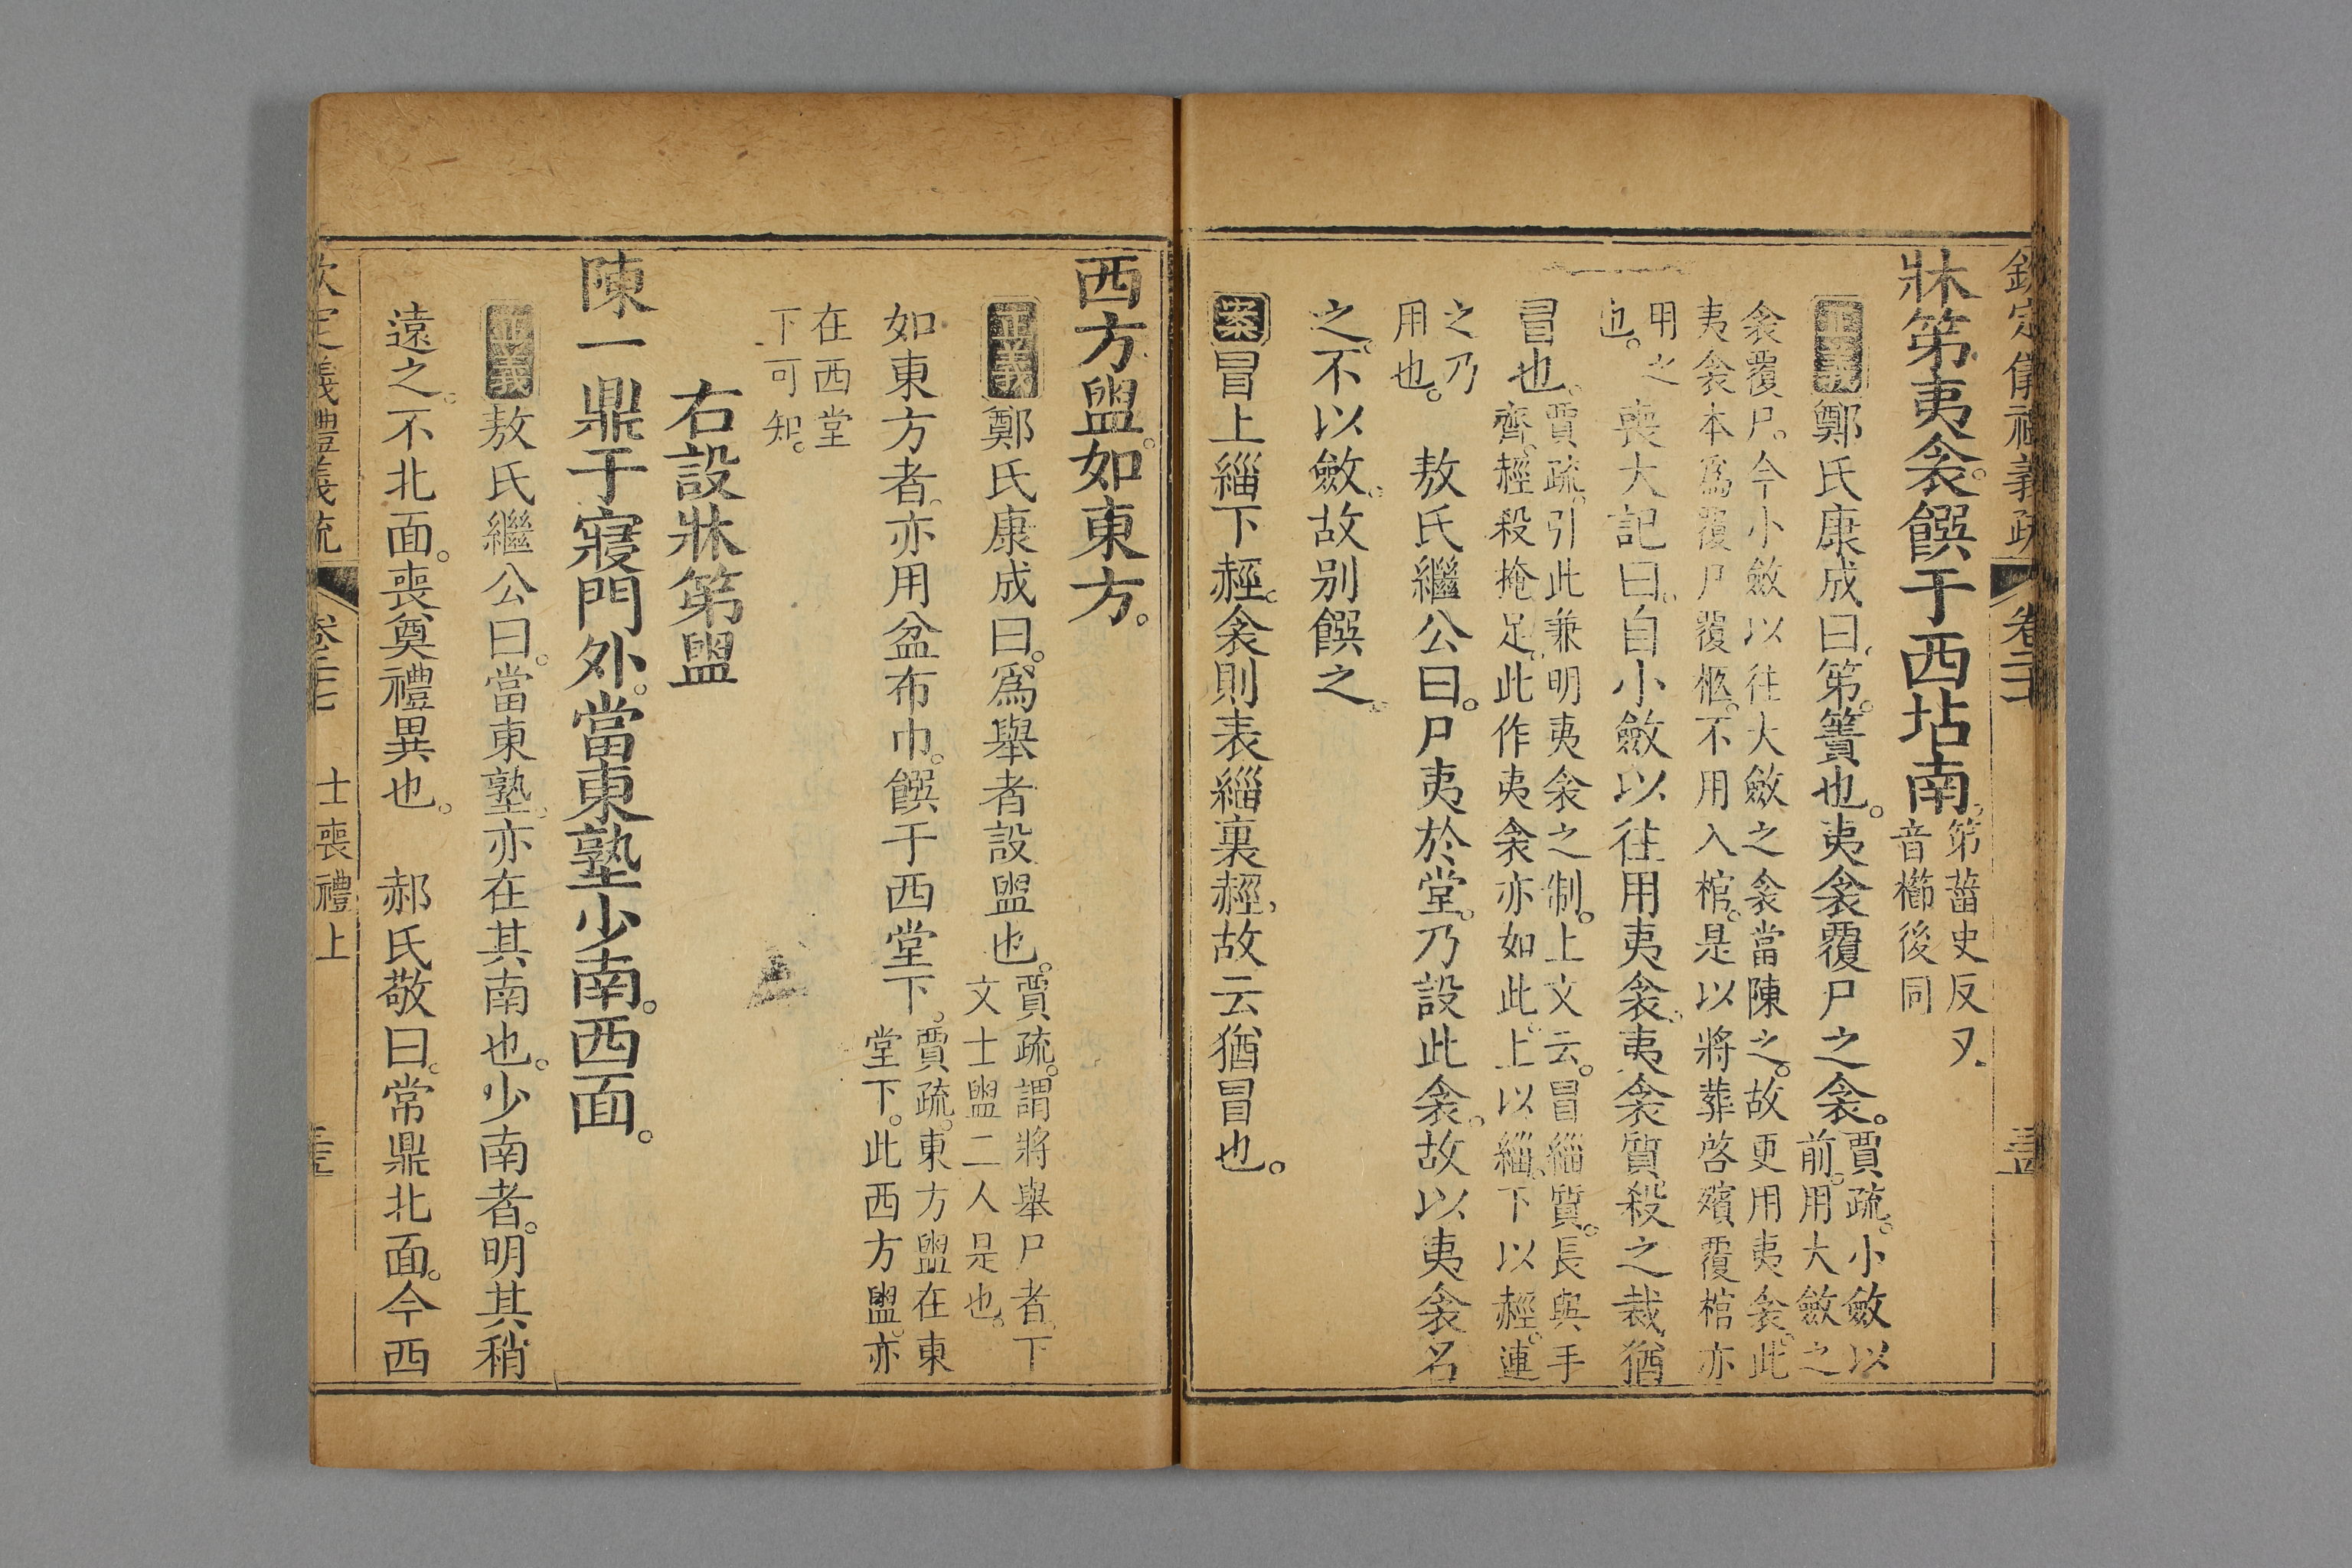 欽定儀禮義疏　卷二十七
牀第夷衾。饌于西坫南。第菑史反又
音櫛後同
正義鄭氏康成曰。第。簀也。夷衾覆尸之衾。賈疏。小斂以
前。用大斂之
衾覆尸。今小斂以往大斂之衾當陳之。故更用夷衾。此
夷衾本爲覆尸覆柩。不用入棺。是以將葬啓殯覆棺亦
用之
也。　喪大記曰。自小斂以往用夷衾。夷衾質殺之裁猶
冒也。賈疏。引此兼明夷衾之制。上文云。冒緇質。長與手
齊。䞓殺掩足。此作夷衾亦如此。上以緇。下以䞓。連
之乃
用也。　敖氏繼公曰。尸夷於堂。乃設此衾。故以夷衾名
之。不以斂。故別饌之。
案冒上緇下䞓。衾則表緇裏䞓。故云猶冒也。
西方盥。如東方。
正義鄭氏康成曰。爲舉者設盥也。賈疏。謂將舉尸者。下
文士盥二人是也。
如東方者。亦用盆布巾。饌于西堂下。賈疏。東方盥在東
堂下。此西方盥。亦
在西堂
下可知。
右設牀第盥
陳一鼎于寢門外。當東塾少南。西面。
正義敖氏繼公曰。當東塾。亦在其南也。少南者。明其稍
遠之。不北面。喪奠禮異也。　郝氏敬曰。常鼎北面。今西
欽定儀禮義疏　卷二十七　士喪禮上